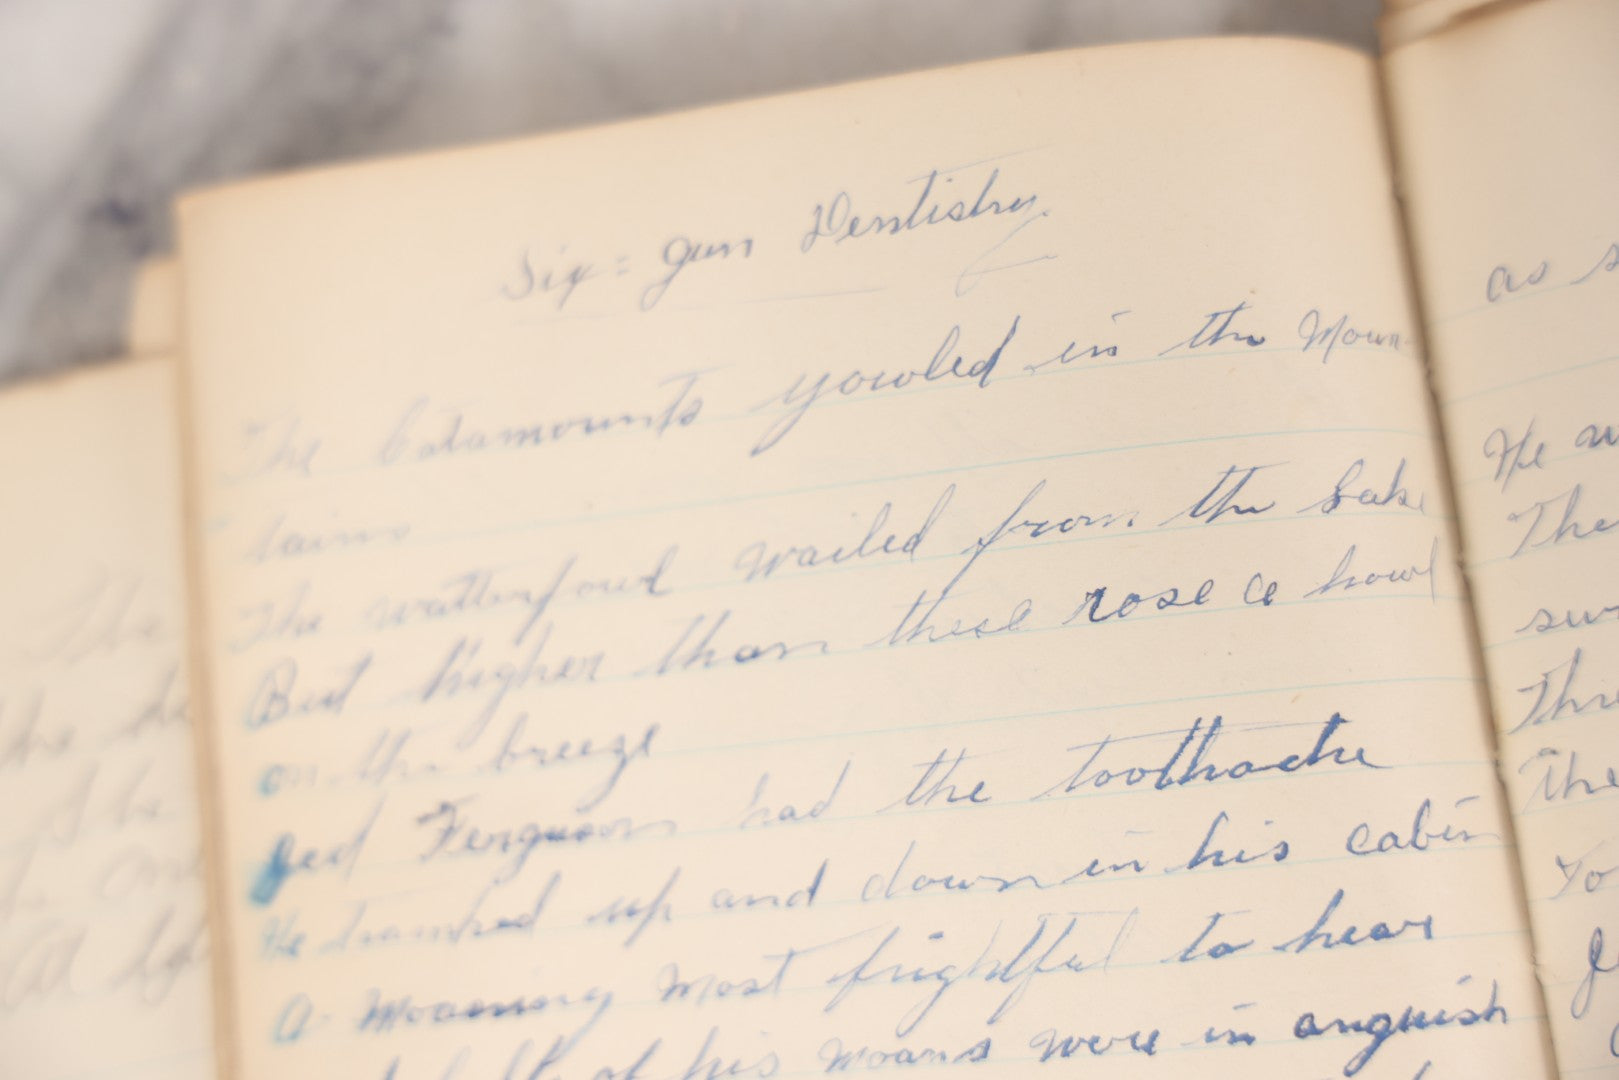 Six=gun Dentistry.
The Catamounts yowled in the Moun-
tains
The watterfowl wailed from the Lake
But higher than these rose a howl
on the breeze
Jed Ferguson had the toothache
He tramped up and down in his cabin
A moaning most frightful to hear
of his moans were in anguish
The
the
The
At
as
He
The
The
Yo